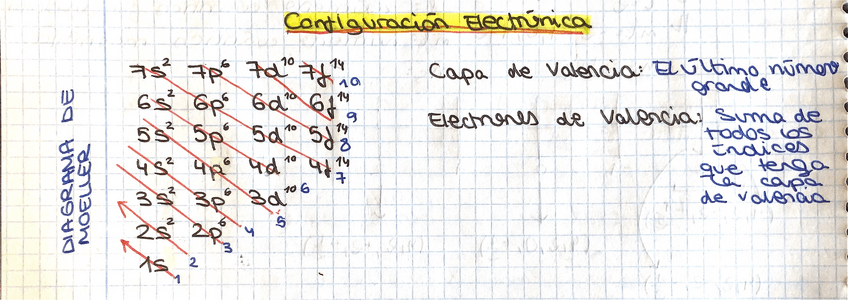 Configuración Electrónica
DIAGRAMA DE
MOELLER
7s² 7p⁶ 7d¹⁰ 7f¹⁴ 10
6s² 6p⁶ 6d¹⁰ 6f¹⁴ 9
5s² 5p⁶ 5d¹⁰ 5f¹⁴ 8
4s² 4p⁶ 4d¹⁰ 4f¹⁴ 7
3s² 3p⁶ 3d¹⁰ 6
5
2s² 2p⁶ 3 4
1s 1 2
Capa de Valencia: El último número
grande
Electrones de Valencia: Suma de
todos los
índices
que tenga
la capa
de valencia